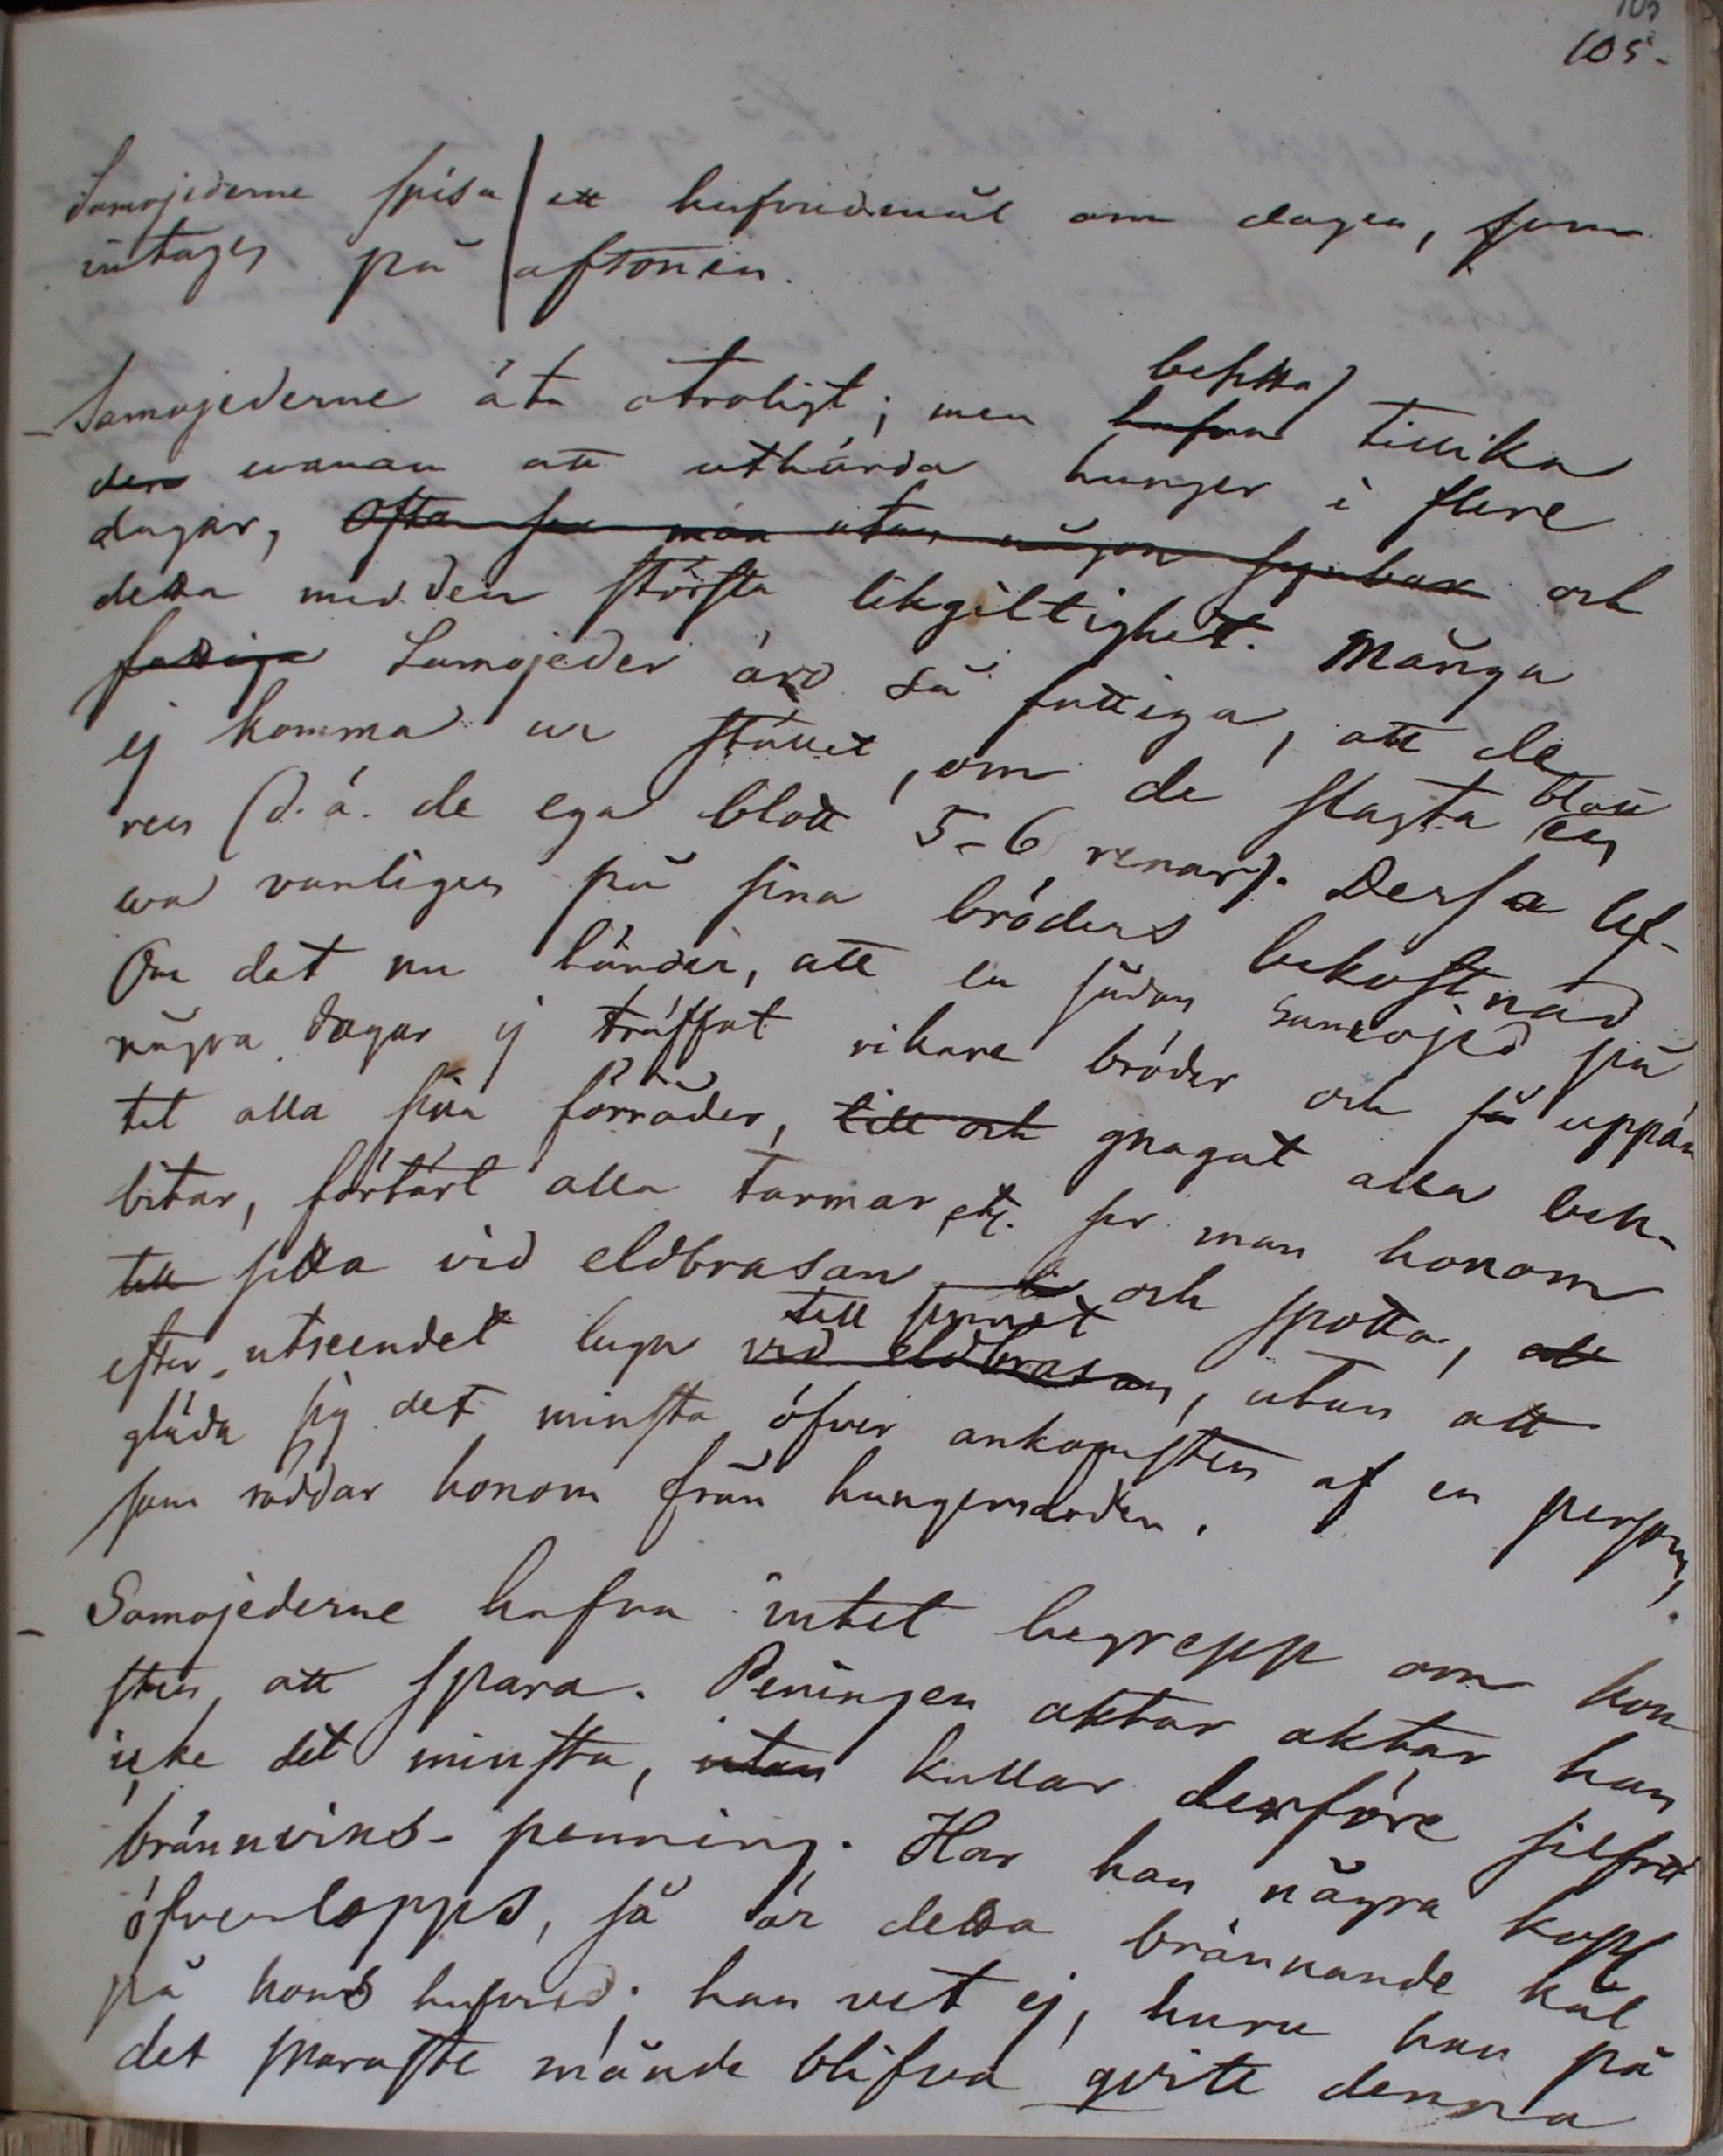 105
105.
Samojederne spisa ett hufvudmål om dagen, som
intages på aftonen.
besitta
Samojederne äta otroligt; men hafva tillika
den wanan att uthärda hunger i flere
dagar, Ofta ser man utan någon synbar och
detta med den största likgiltighet. Många
fattiga Samojeder äro så fattiga, att de
blott
ej komma ur stället, om de slagta en
ren (d. ä. de ega blott 5-6 renar). Dessa lef-
wa vanligen på sina bröders bekostnad
Om det nu händer, att en sådan Samojed på
några dagar ej träffat rikare bröder och så uppä-
tit alla sina förråder, till och gnagat alla ben-
bitar, förtärt alla tarmar etc. ser man honom
till sitta vid eldbrasan och spotta, att
till sinnet
efter utseendet lugn vid eldbrasan, utan att
gläda sig det minsta öfver ankomsten af en person,
som räddar honom från hungersdöden.
Samojederne hafva intet begrepp om kon-
sten att spara. Peningen aktar aktar han
icke det minsta, utan kallar derföre silfret
brännvins-penning. Har han några kop.
öfverlopps, så är detta brännande kål
på hans hufvud; han vet ej, huru han på
det snaraste månde blifva qvitt denna